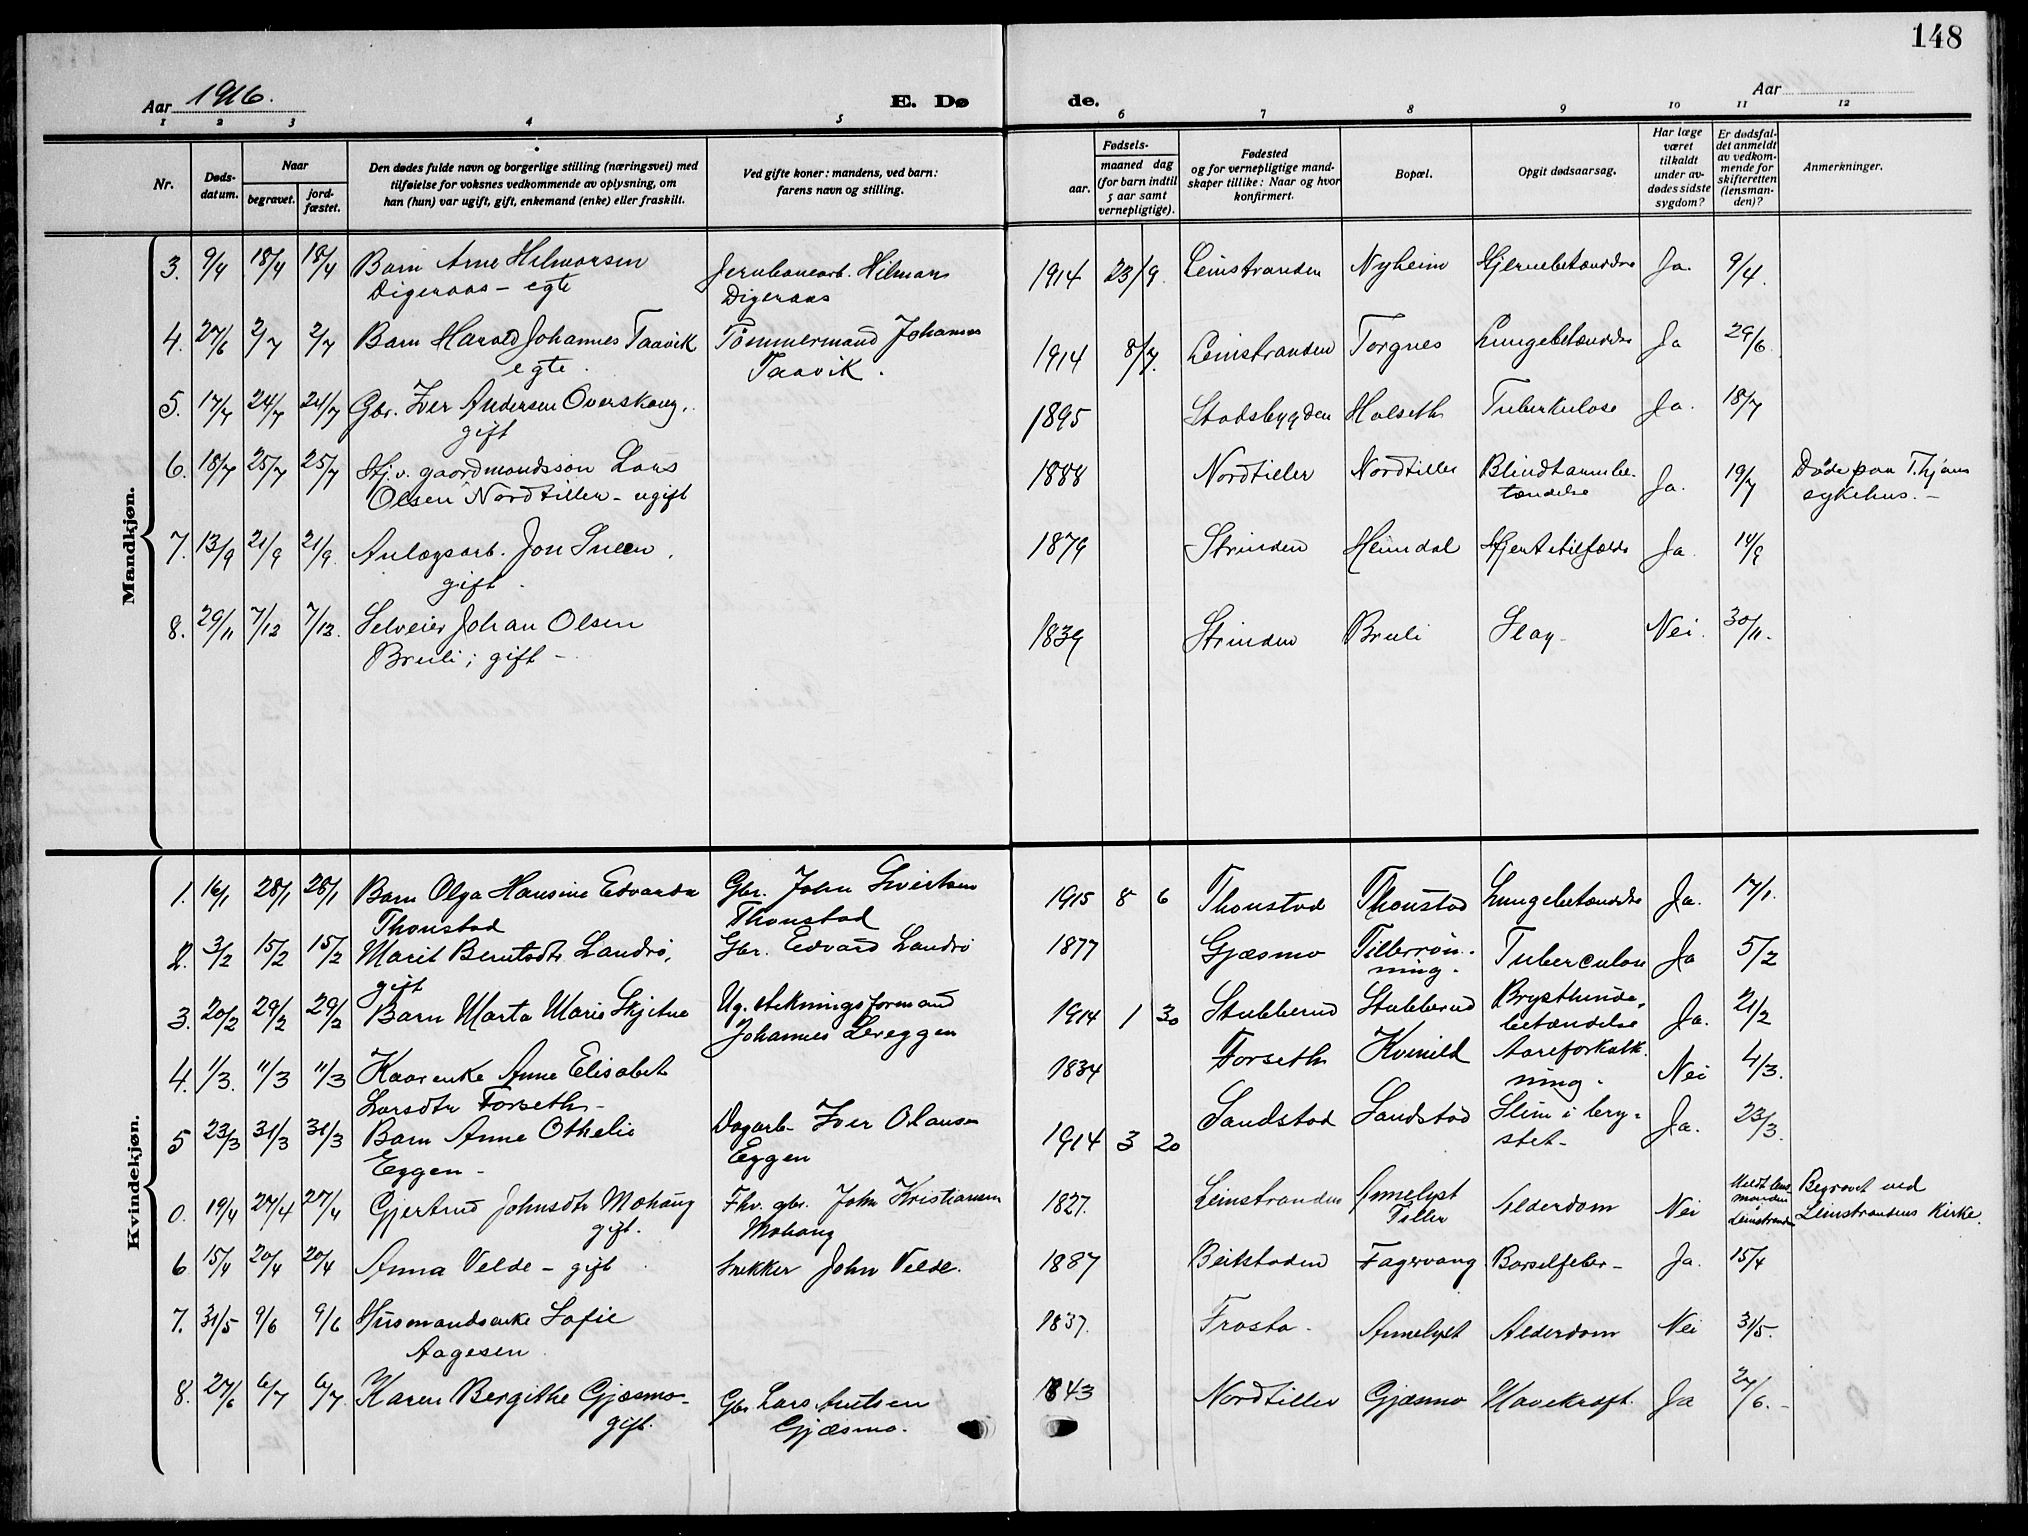 148
Aar 1916.
E. Dø
de.
Aar
1 2 3 4 5 6 7 8 9 10 11 12
Nr.
Døds-
datum.
Naar
begravet.
jord-
fæstet.
Den dødes fulde navn og borgerlige stilling (næringsvei) med
tilføielse for voksnes vedkommende av oplysning, om
han (hun) var ugift, gift, enkemand (enke) eller fraskilt.
Ved gifte koner: mandens, ved barn:
farens navn og stilling.
Fødsels-
aar.
maaned dag
(for barn indtil
5 aar samt
vernepligtige).
Fødested
og for vernepligtige mand-
skaper tillike: Naar og hvor
konfirmert.
Bopæl.
Opgit dødsaarsag.
Har læge
været
tilkaldt
under av-
dødes sidste
sygdom?
Er dødsfal-
det anmeldt
av vedkom-
mende for
skifteretten
(lensman-
den)?
Anmerkninger.
Mandkjøn.
3. 9/4 18/4 18/4 Barn Arne Hilmarsen Jernbanearb. Hilmar 1914 23/9. Leinstranden Nyheim Hjernebetændelse Ja. 9/4.
Digeraas - egte Digeraas
4. 27/6 2/7 2/7 Barn Harold Johannes Taavik Tømmermand Johannes 1914 8/7. Leinstranden Torgnes Lungebetændelse Ja 29/6
egte. Taavik.
5. 17/7 24/7 24/7 Gbr. Iver Andersen Overskaug, 1895 Stadsbygden Halseth Tuberkulose Ja. 18/7
gift
6. 18/7 25/7 25/7 Hj.v. gaardmandssøn Lars 1888 Nordtiller Nordtiller Blindtarmbe- Ja. 19/7 Døde paa T.hjems
Olsen Nordtiller - ugift tændelse sykehus. -
7. 13/9 21/9 21/9 Anlægsarb. Jon Sneen, 1879 Strinden Heimdal Hjertetilfælde Ja 14/9
gift.
8. 29/11 7/12 7/12. Selveier Johan Olsen 1839 Strinden Bruli Slag. Nei. 30/11.
Bruli; gift -
Kvindekjøn.
1. 16/1 28/1 28/1 Barn Olga Hansine Edvarda Gbr. John Sivertsen 1915 8 6 Thonstad Thonstad Lungebetændelse Ja. 17/1.
Thonstad Thonstad
2. 3/2 15/2 15/2 Marit Berntsdtr Landrø, Gbr. Edvard Landrø 1877 Gjæsmo Tillerrøn- Tuberculose Ja 5/2
gift ning.
3. 20/2 29/2 29/2 Barn Marta Marie Skjetne Ug. stikningsformand 1914 1 30 Stubberud Stubberud Brysthinde- Ja. 21/2
Johannes Leveggen betændelse
4. 1/3. 11/3 11/3 Kaarenke Anne Elisabet 1834 Forseth Kvenild Aareforkalk- Nei 4/3.
Larsdtr Forseth - ning.
5 23/3 31/3 31/3 Barn Anne Othelie Dagarb. Iver Olausen 1914 3 20 Sandstad Sandstad Slim i bry- Ja. 23/3.
Eggen - Eggen stet -
0. 19/4 27/4 27/4 Gjertrud Johnsdtr Mohaug Fhv. gbr. John Kristiansen 1827. Leinstranden Annelyst Alderdom Nei Meldt lens- Begravet ved
gift. Mohaug Tiller manden Leinstrandens Kirke.
Leinstranden
6 15/4 20/4 20/4 Anna Velde - gift Snekker John Velde. 1887 Beitstaden Fagervang Barselfeber - Ja. 15/4
7. 31/5 9/6 9/6 Husmandsenke Sofie 1837. Frosta. Annelyst Alderdom Nei 31/5.
Aagesen
8. 27/6 6/7 6/7 Karen Bergithe Gjæsmo - Gbr. Lars Antsen 1843 Nordtiller Gjæsmo Mavekræft. Ja 27/6. -
gift. Gjæsmo.